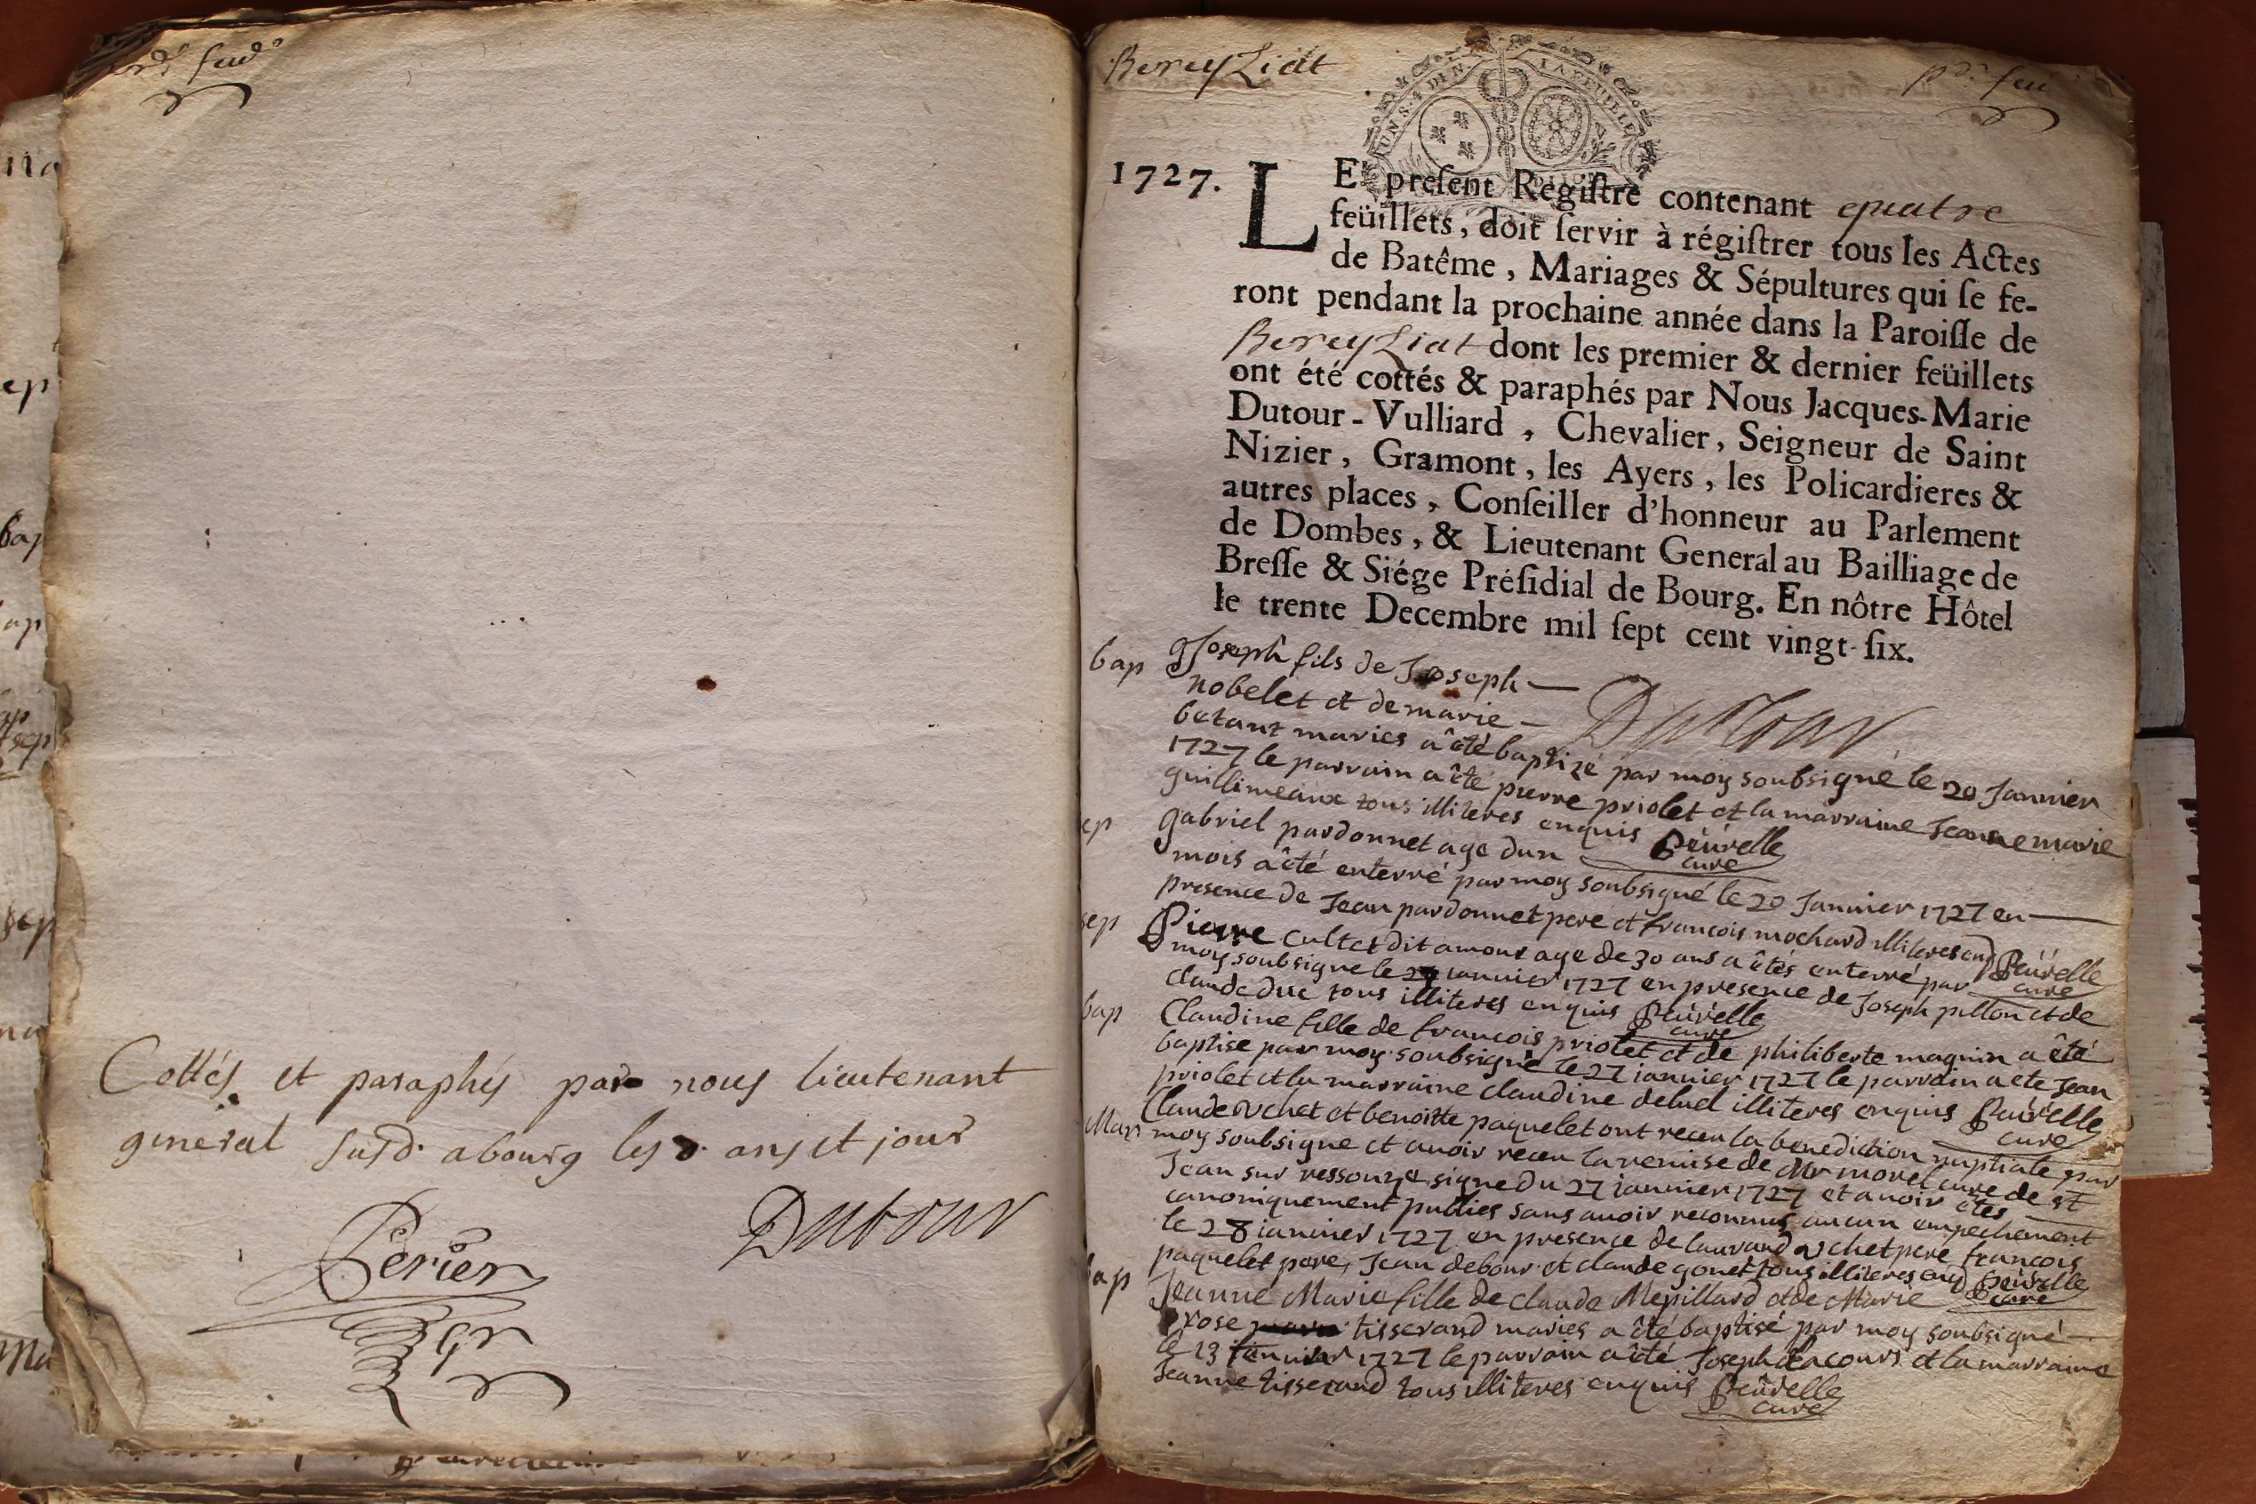 feud
Cottés et paraphés par nous lieutenant
general susd. a bourg les d. ans et jour
Perier
Dutour
BereyZiat
1727.
LE present Registre contenant quatre
feüillets, doit servir à régistrer tous les Actes
de Batême, Mariages & Sépultures qui se fe-
ront pendant la prochaine année dans la Paroisse de
BereyZiat dont les premier & dernier feüillets
ont été cottés & paraphés par Nous Jacques-Marie
Dutour-Vulliard, Chevalier, Seigneur de Saint
Nizier, Gramont, les Ayers, les Policardieres &
autres places, Conseiller d'honneur au Parlement
de Dombes, & Lieutenant General au Bailliage de
Bresse & Siége Présidial de Bourg. En nôtre Hôtel
le trente Decembre mil sept cent vingt-six.
Dutour
bap Joseph fils de Joseph
nobelet et de marie
betant maries a êté baptizé par moy soubsigné le 20 Janvier
1727 le parrain a êté pierre priolet et la marraine Jeanne marie
guillimeaux tous illiteres enquis Peüvelle
cure
sep gabriel pardonnet age dun
mois a êté enterré par moy soubsigné le 20 Janvier 1727 en
presence de Jean pardonnet pere et francois mochard illiteres enq Peüvelle
cure
sep Pierre cultet dit amour age de 30 ans a êtés enterré par
moy soubsigne le 27 ianvier 1727 en presence de Joseph pillon et de
claude duc tous illiteres enquis Peüvelle
cure
bap Claudine fille de francois priolet et de philiberte magnin a êté
baptise par moy soubsigné le 27 ianvier 1727 le parrain a ete Jean
priolet et la marraine claudine deluel illiteres enquis Peüvelle
cure
Mar Claude uchet et benoitte paquelet ont receu la benediction nuptiale par
moy soubsigne et avoir receu la remise de Mr morel cure de st
Jean sur ressouze signe du 27 ianvier 1727 et avoir êtes
canoniquement publies sans avoir reconnus aucun empechement
le 28 ianvier 1727 en presence de laurand uchet pere francois
paquelet pere, Jean debour et claude gonet tous illiteres enq Peüvelle
cure
bap Jeanne Marie fille de claude Mepillard et de Marie
rose tisserand maries a êté baptisé par moy soubsigné
le 13 ianvier 1727 le parrain a êté Joseph lacours et la marraine
Jeanne tisserand tous illiteres enquis Peüvelle
cure